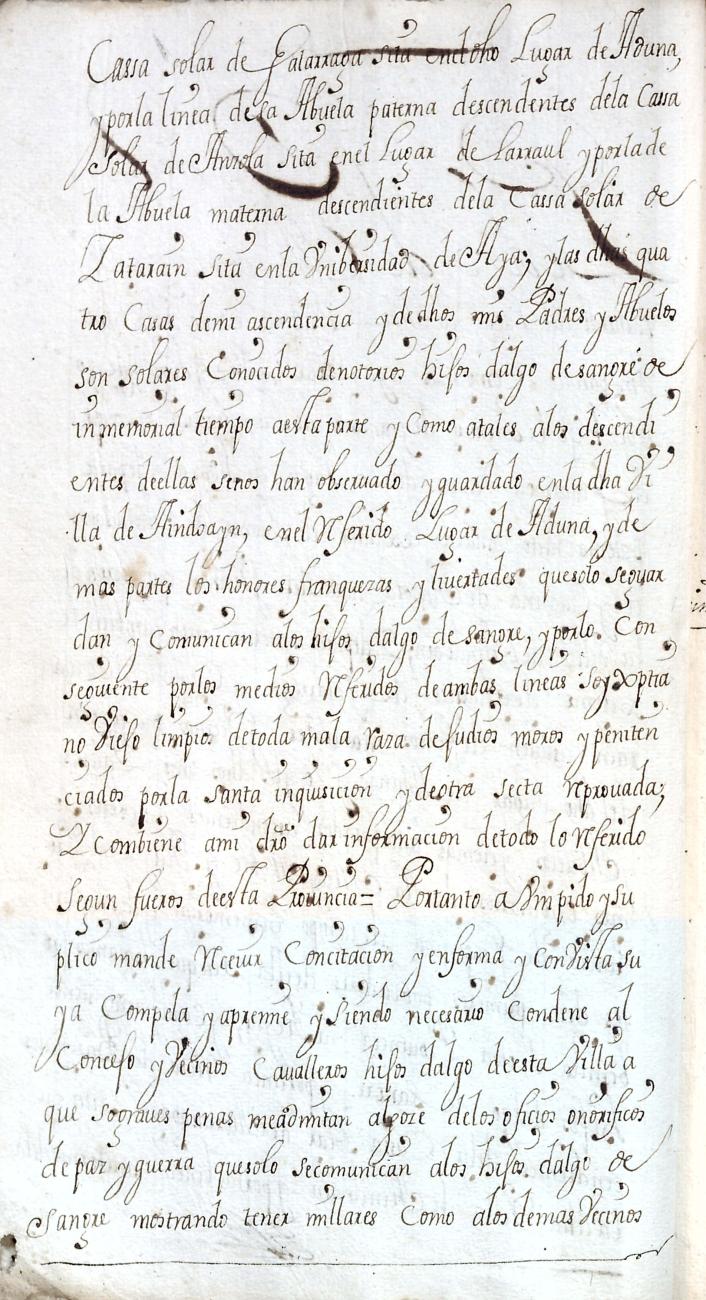 Cassa solar de Galarraga sita en el dho Lugar de Aduna,
y por la linea de la Abuela paterna descendentes dela Cassa
Solar de Anzola sita enel Lugar de Larraul y por la de
la Abuela materna descendientes dela Cassa solar de
Zatarain sita enla Vnibersidad de Aya; y las dhas qua
tro Casas demi ascendencia y de dhos mis Padres y Abuelos
son solares Conocidos denotorios hijos dalgo desangre de
inmemorial tiempo aesta parte y Como atales alos descendi
entes deellas senos han observado y guardado enla dha Vi
lla de Aindoayn, enel Referido Lugar de Aduna, y de
mas partes los honores franquezas y livertades quesolo seguar
dan y Comunican alos hijos dalgo de sangre, y porlo Con
seguiente porlos medios Referidos deambas lineas soy xptia
no Viejo limpio detoda mala raza dejudios moros y peniten
ciados porla santa inquisicion y deotra secta Reprovada;
Y combiene ami dro dar informacion detodo lo Referido
segun fueros deesta Provincia= Portanto a Vm pido y su
plico mande Recevir Concitacion y enforma y Con Vista su
ya Compela y apremie y siendo necesario Condene al
Concejo y Vecinos Cavalleros hijos dalgo deesta Villa a
que so graves penas meadmitan algoze delos oficios onorificos
de paz y guerra quesolo secomunican alos hijos dalgo de
sangre mostrando tener millares Como alos demas Vecinos